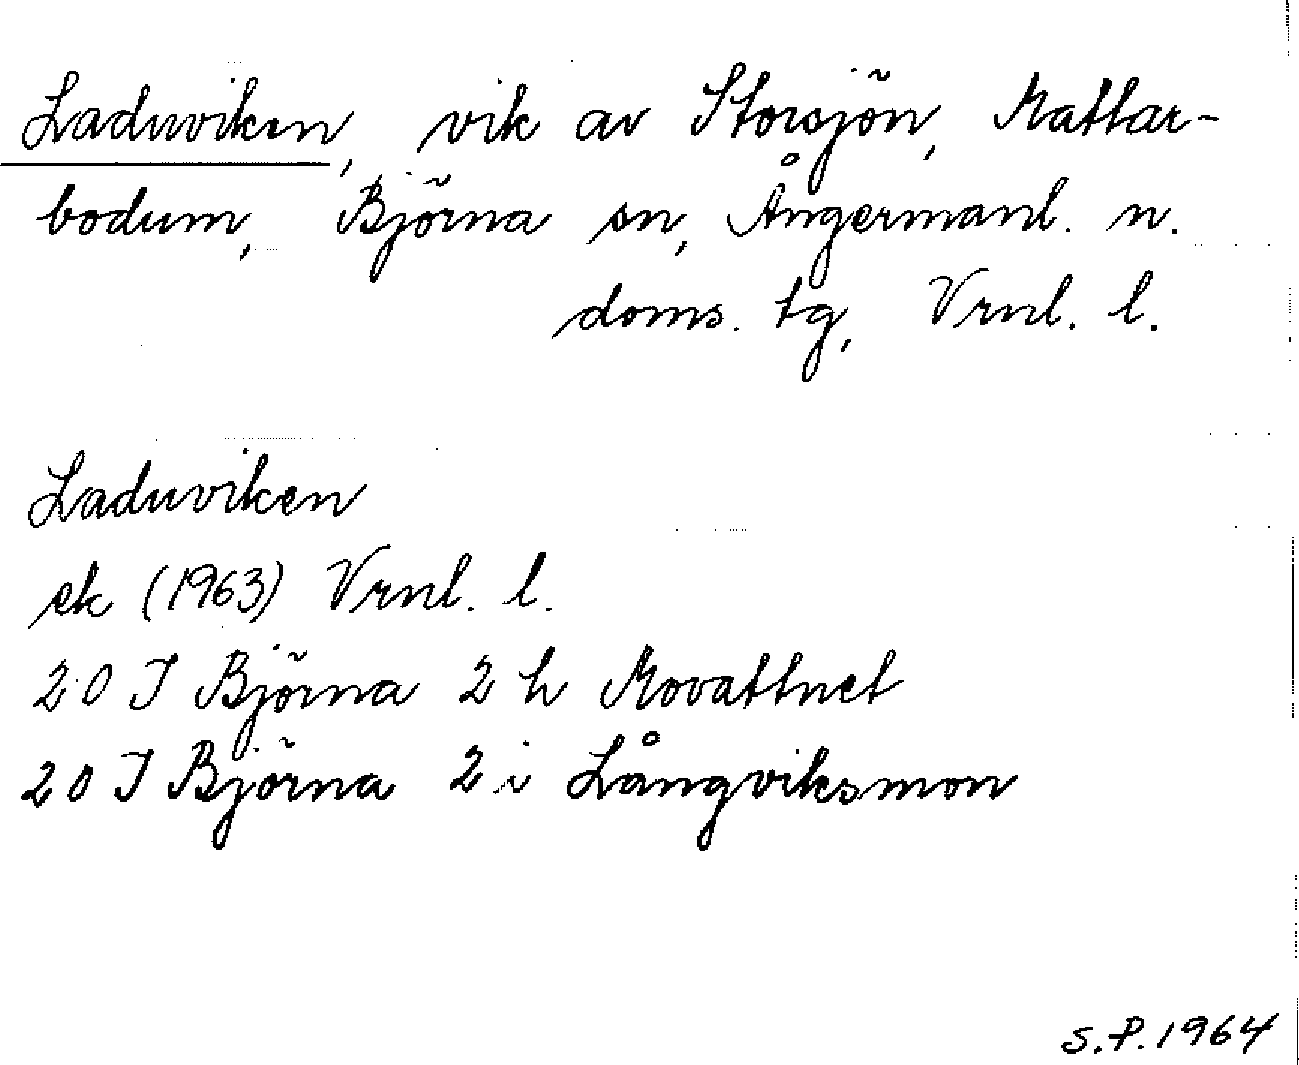 Laduviken, vik av Storsjön, Mattar-
bodum, Björna sn, Ångermanl. n.
doms. tg, Vrnl. l.
Laduviken
ek (1963) Vrnl. l.
20 I Björna 2 h Movattnet
20 I Björna 2 i Långviksmon
S.P. 1964